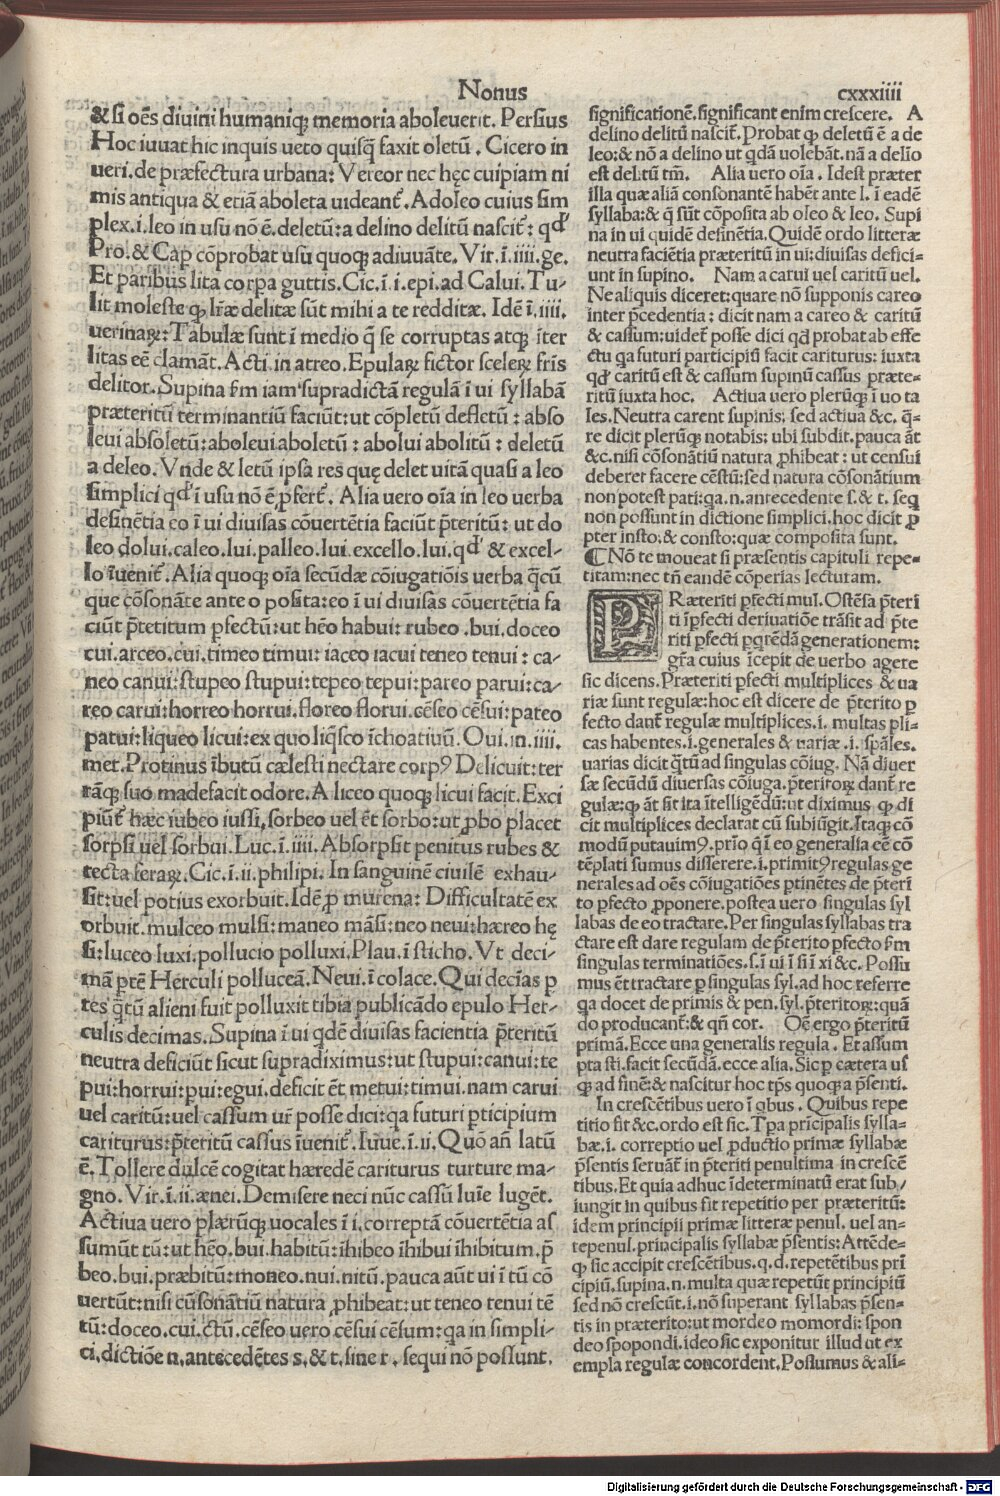 Nonus
cxxxiiii
& si oẽs diuini humaniq; memoria aboleuerit. Persius
Hoc iuuat hic inquis ueto quisq̃ faxit oletũ. Cicero in
ueri. de præfectura urbana: Vereor nec hęc cuipiam ni
mis antiqua & etiã aboleta uideant᷑. Adoleo cuius sim
plex .i. leo in usu nõ ē. deletũ: a delino delitũ nascit᷑: qd᷑
Pro. & Cap cõprobat usu quoq; adiuuãte. Vir. ĩ. iiii. ge.
Et paribus lita corpa guttis. Cic. ĩ. i. epi. ad Calui. Tu-
lit moleste q; lr̃æ delitæ sũt mihi a te redditæ. Idẽ ĩ. iiii.
uerinaꝝ: Tabulæ sunt ĩ medio q̃ se corruptas atq; ĩter
litas eẽ clamãt. Acti. in atreo. Epulaꝝ fictor sceleꝝ fr̃is
delitor. Supina s̃m iam supradictã regulã ĩ ui syllabã
præteritũ terminantiũ faciũt: ut cõpletũ defletũ: abso
leui absoletũ: aboleui aboletũ: abolui abolitũ: deletũ
a deleo. Vnde & letũ ipsa res quę delet uitã quasi a leo
simplici qd᷑ ĩ usu nõ ē ꝓfert᷑. Alia uero oĩa in leo uerba
desinẽtia eo ĩ ui diuisas cõuertẽtia faciũt p̃teritũ: ut do
leo dolui. caleo. lui. palleo. lui. excello. lui. qd᷑ & excel-
lo ĩuenit᷑. Alia quoq; oĩa secũdæ cõiugatiõis uerba q̃cũ
que cõsonãte ante o posita: eo ĩ ui diuisas cõuertẽtia fa
ciũt p̃tetitum pfectũ: ut hẽo habui: rubeo. bui. doceo
cui. arceo. cui. timeo timui: iaceo iacui teneo tenui: ca-
neo canui: stupeo stupui: tepeo tepui: pareo parui: ca-
reo carui: horreo horrui. floreo florui. cẽseo cẽsui: pateo
patui: liqueo licui: ex quo liq̃sco ĩchoatiuũ. Oui. in. iiii.
met. Protinus ĩbutũ cælesti nectare corpꝰ Delicuit: ter
rãq; suo madefacit odore. A liceo quoq; licui facit. Exci
piũt᷑ hæc iubeo iussi, sorbeo uel ẽt sorbo: ut ꝓbo placet
sorpsi uel sorbui. Luc. ĩ. iiii. Absorpsit penitus rubes &
tecta feraꝝ. Cic. ĩ. ii. philipi. In sanguinẽ ciuilẽ exhau-
sit: uel potius exorbuit. Idẽ ꝓ murena: Difficultatẽ ex
orbuit. mulceo mulsi: maneo mãsi: neo neui: hæreo hę
si: luceo luxi. pollucio polluxi. Plau. ĩ sticho. Vt deci-
mã pr̃ẽ Herculi polluceã. Neui. ĩ colace. Qui decĩas p
tes q̃tũ alieni fuit polluxit tibia publicãdo epulo Her-
culis decimas. Supina ĩ ui qdẽ diuisas facientia p̃teritũ
neutra deficiũt sicut supradiximus: ut stupui: canui: te
pui: horrui: pui: egui. deficit ẽt metui: timui. nam carui
uel caritũ: uel cassum ur̃ posse dici: qa futuri pticipium
cariturus: p̃teritũ cassus ĩuenit᷑. Iuue. ĩ. ii. Quõ añ latũ
ẽ. Tollere dulcẽ cogitat hæredẽ cariturus turture ma-
gno. Vir. ĩ. ii. ænei. Demisere neci nũc cassũ luĩe lugẽt.
Actiua uero plærũq; uocales ĩ i. correptã cõuertẽtia as
sumũt tũ: ut hẽo. bui. habitũ: ĩhibeo ĩhibui ĩhibitum. p̃
beo. bui. præbitũ: moneo. nui. nitũ. pauca aũt ui ĩ tũ cõ
uertũt: nisi cũsonãtiũ natura ꝓhibeat: ut teneo tenui tẽ
tũ: doceo. cui. ctũ. cẽseo uero cẽsui cẽsum: qa in simpli-
ci. dictiõe n. antecedẽtes s. & t. sine r. sequi nõ possunt.
significationẽ. significant enim crescere. A
delino delitũ nascit᷑. Probat q; deletũ ẽ a de
leo: & nõ a delino ut qdã uolebãt. nã a delio
est delitũ tm̃. Alia uero oĩa. Idest præter
illa quæ aliã consonantẽ habẽt ante l. ĩ eadẽ
syllaba: & q̃ sũt cõposita ab oleo & leo. Supi
na in ui quidẽ desinẽtia. Quidẽ ordo litteræ
neutra faciẽtia præteritũ in ui: diuisas defici-
unt in supino. Nam a carui uel caritũ uel.
Ne aliquis diceret: quare nõ supponis careo
inter p̃cedentia: dicit nam a careo & caritũ
& cassum: uidet᷑ posse dici qd probat ab effe
ctu qa futuri participiũ facit cariturus: iuxta
qd᷑ caritũ est & cassum supinũ cassus præte-
ritũ iuxta hoc. Actiua uero plerũq; ĩ uo ta
les. Neutra carent supinis: sed actiua &c. q̃-
re dicit plerũq; notabis: ubi subdit. pauca ãt
&c. nisi cõsonãtiũ natura ꝓhibeat: ut censui
deberet facere cẽstũ: sed natura cõsonãtium
non potest pati: qa. n. antecedente s. & t. seq
non possunt in dictione simplici. hoc dicit ꝓ
pter insto: & consto: quæ composita sunt.
¶ Nõ te moueat si præsentis capituli repe-
titam: nec tñ eandẽ cõperias lecturam.
PRæteriti pfecti mul. Ostẽsa p̃teri
ti ĩpfecti deriuatiõe trãsit ad p̃te
riti pfecti pq̃rẽdã generationem:
gr̃a cuius ĩcepit de uerbo agere
sic dicens. Præteriti pfecti multiplices & ua
riæ sunt regulæ: hoc est dicere de p̃terito p
fecto dant᷑ regulæ multiplices. i. multas pli-
cas habentes. i. generales & uariæ. i. sp̃ales.
uarias dicit q̃tũ ad singulas cõiug. Nã diuer
sæ secũdũ diuersas cõiuga. p̃teritoꝝ dant᷑ re
gulæ: q; ãt sit ita ĩtelligẽdũ: ut diximus q; di
cit multiplices declarat cũ subiũgit. Itaq; cõ
modũ putauimꝰ. prĩo q̃ ĩ eo generalia eẽ cõ
tẽplati sumus disserere. i. primitꝰ regulas ge
nerales ad oẽs cõiugatiões ptinẽtes de p̃teri
to pfecto ꝓponere. postea uero singulas syl
labas de eo tractare. Per singulas syllabas tra
ctare est dare regulam de p̃terito pfecto s̃m
singulas terminatiões. s. ĩ ui ĩ si ĩ xi &c. Possu
mus ẽt tractare p singulas syl. ad hoc referre
qa docet de primis & pen. syl. p̃teritoꝝ: quã
do producant᷑: & qñ cor. Oẽ ergo p̃teritũ
primã. Ecce una generalis regula. Et assum
pta sti. facit secũdã. ecce alia. Sic p cætera us
q; ad finẽ: & nascitur hoc tp̃s quoq; a p̃senti.
In crescẽtibus uero ĩ qbus. Quibus repe
titio fit &c. ordo est sic. Tpa pricipalis sylla-
bæ. i. correptio uel ꝓductio primæ syllabæ
p̃sentis seruãt᷑ in p̃teriti penultima in crescẽ
tibus. Et quia adhuc ĩdeterminatũ erat sub/
iungit in quibus fit repetitio per præteritũ:
idem principii primæ litteræ penul. uel an-
tepenul. principalis syllabæ p̃sentis: Attẽde-
q; sic accipit crescẽtibus. q. d. repetẽtibus pri
cipiũ. supina. n. multa quæ repetũt principiũ
sed nõ crescũt. i. nõ superant syllabas p̃sen-
tis in præterito: ut mordeo momordi: spon
deo spopondi. ideo sic exponitur illud ut ex
empla regulæ concordent. Possumus & ali-
Digitalisierung gefördert durch die Deutsche Forschungsgemeinschaft - DFG